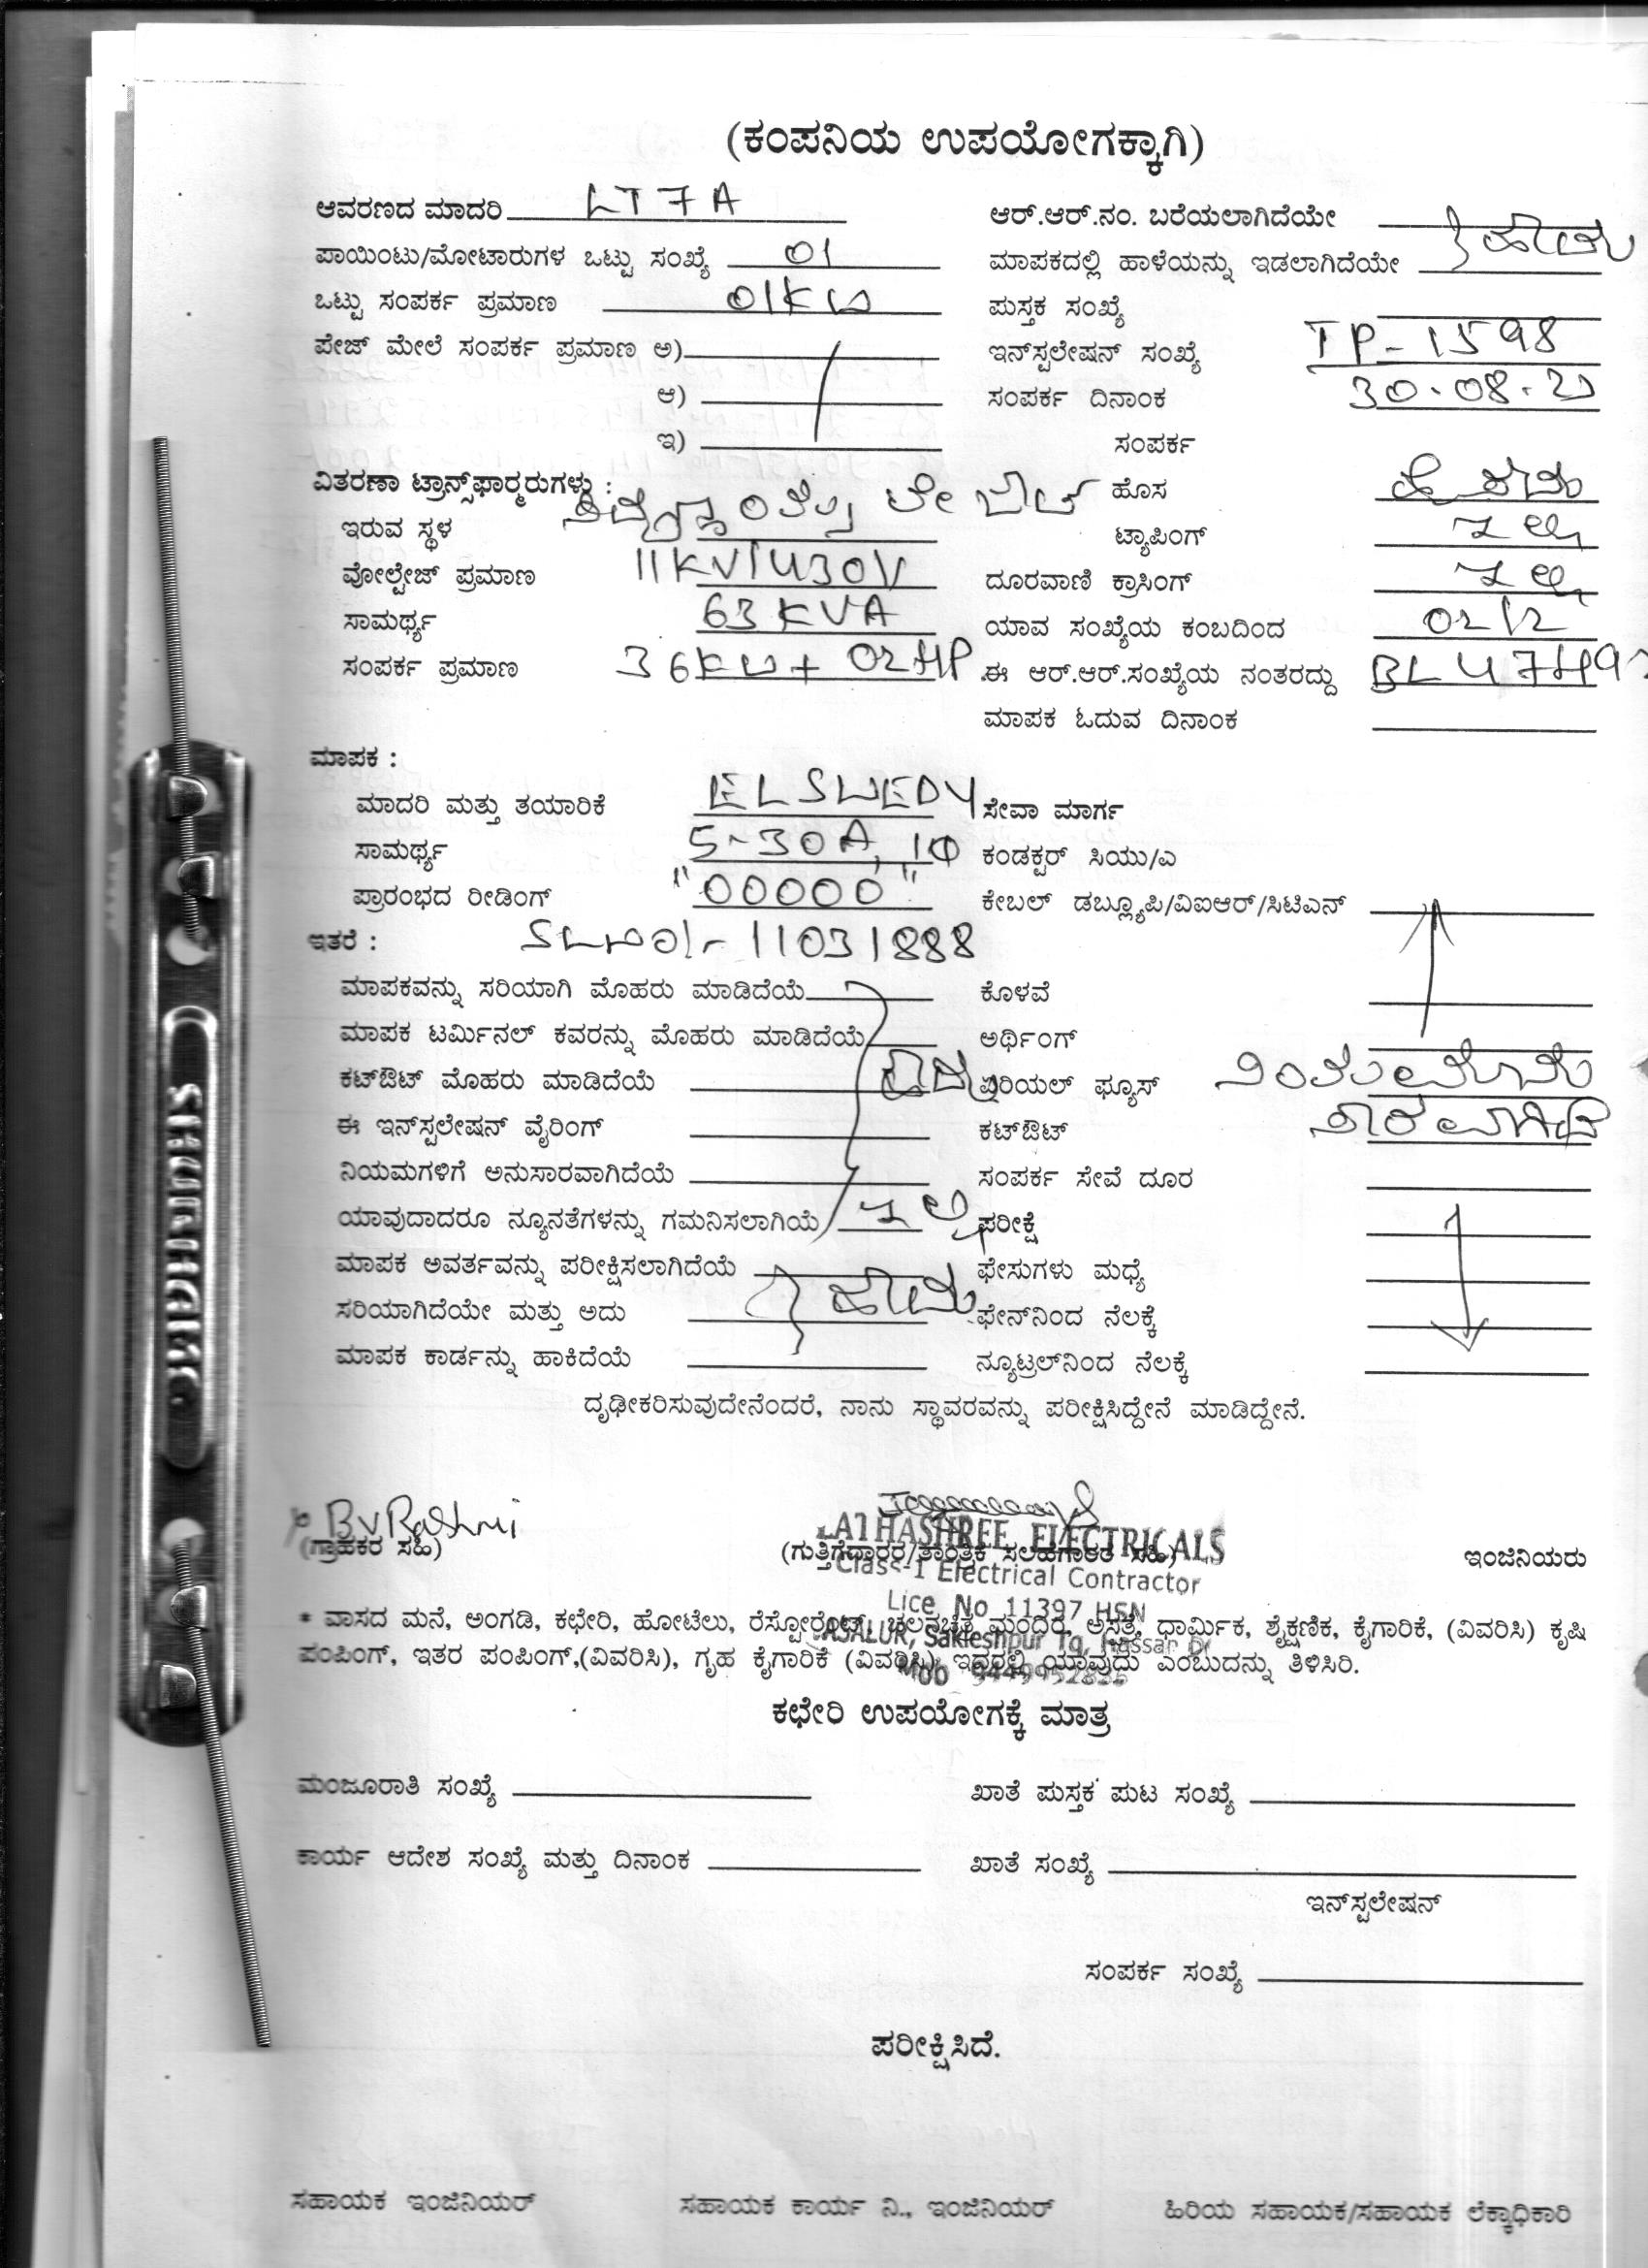 (ಕಂಪನಿಯ ಉಪಯೋಗಕ್ಕಾಗಿ)
ಆವರಣದ ಮಾದರಿ LT 7A
ಆರ್.ಆರ್.ನಂ. ಬರೆಯಲಾಗಿದೆಯೇ
ಪಾಯಿಂಟು/ಮೋಟಾರುಗಳ ಒಟ್ಟು ಸಂಖ್ಯೆ 01
ಮಾಪಕದಲ್ಲಿ ಹಾಳೆಯನ್ನು ಇಡಲಾಗಿದೆಯೇ ಹೌದು
ಒಟ್ಟು ಸಂಪರ್ಕ ಪ್ರಮಾಣ 01KW
ಪುಸ್ತಕ ಸಂಖ್ಯೆ
ಪೇಜ್ ಮೇಲೆ ಸಂಪರ್ಕ ಪ್ರಮಾಣ ಅ)
ಇನ್‌ಸ್ಟಲೇಷನ್ ಸಂಖ್ಯೆ TP-1598
ಆ)
ಸಂಪರ್ಕ ದಿನಾಂಕ 30.08.21
ಇ)
ಸಂಪರ್ಕ
ವಿತರಣಾ ಟ್ರಾನ್ಸ್‌ಫಾರ್ಮರುಗಳು :
ಹೊಸ
ಇರುವ ಸ್ಥಳ
ಟ್ಯಾಪಿಂಗ್ ಇಲ್ಲ
ವೋಲ್ಟೇಜ್ ಪ್ರಮಾಣ 11KV/430V
ದೂರವಾಣಿ ಕ್ರಾಸಿಂಗ್ ಇಲ್ಲ
ಸಾಮರ್ಥ್ಯ 63KVA
ಯಾವ ಸಂಖ್ಯೆಯ ಕಂಬದಿಂದ 02/2
ಸಂಪರ್ಕ ಪ್ರಮಾಣ 36KW+02HP
ಈ ಆರ್.ಆರ್.ಸಂಖ್ಯೆಯ ನಂತರದ್ದು
ಮಾಪಕ ಓದುವ ದಿನಾಂಕ
ಮಾಪಕ :
ಮಾದರಿ ಮತ್ತು ತಯಾರಿಕೆ ELSWEDY
ಸೇವಾ ಮಾರ್ಗ
ಸಾಮರ್ಥ್ಯ 5-30A, 1Φ
ಕಂಡಕ್ಟರ್ ಸಿಯು/ಎ
ಪ್ರಾರಂಭದ ರೀಡಿಂಗ್ "00000"
ಕೇಬಲ್ ಡಬ್ಲ್ಯೂಪಿ/ವಿಐಆರ್/ಸಿಟಿಎನ್
ಇತರೆ : SLNO/- 11031888
ಮಾಪಕವನ್ನು ಸರಿಯಾಗಿ ಮೊಹರು ಮಾಡಿದೆಯೆ
ಕೊಳವೆ
ಮಾಪಕ ಟರ್ಮಿನಲ್ ಕವರನ್ನು ಮೊಹರು ಮಾಡಿದೆಯೆ
ಅರ್ಥಿಂಗ್
ಕಟ್‌ಔಟ್ ಮೊಹರು ಮಾಡಿದೆಯೆ
ಏರಿಯಲ್ ಫ್ಯೂಸ್ ನಿಯಮಾನು
ಈ ಇನ್‌ಸ್ಟಲೇಷನ್ ವೈರಿಂಗ್
ಕಟ್‌ಔಟ್ ಸಾರವಾಗಿದೆ
ನಿಯಮಗಳಿಗೆ ಅನುಸಾರವಾಗಿದೆಯೆ
ಸಂಪರ್ಕ ಸೇವೆ ದೂರ
ಯಾವುದಾದರೂ ನ್ಯೂನತೆಗಳನ್ನು ಗಮನಿಸಲಾಗಿಯೆ ಇಲ್ಲ
ಪರೀಕ್ಷೆ
ಮಾಪಕ ಅವರ್ತವನ್ನು ಪರೀಕ್ಷಿಸಲಾಗಿದೆಯೆ
ಫೇಸುಗಳು ಮಧ್ಯೆ
ಸರಿಯಾಗಿದೆಯೇ ಮತ್ತು ಅದು ಹೌದು
ಫೇನ್‌ನಿಂದ ನೆಲಕ್ಕೆ
ಮಾಪಕ ಕಾರ್ಡನ್ನು ಹಾಕಿದೆಯೆ
ನ್ಯೂಟ್ರಲ್‌ನಿಂದ ನೆಲಕ್ಕೆ
ದೃಢೀಕರಿಸುವುದೇನೆಂದರೆ, ನಾನು ಸ್ಥಾವರವನ್ನು ಪರೀಕ್ಷಿಸಿದ್ದೇನೆ ಮಾಡಿದ್ದೇನೆ.
BV Rashmi
LATHASHREE ELECTRICALS
(ಗ್ರಾಹಕರ ಸಹಿ)
(ಗುತ್ತಿಗೆದಾರರ/ತಾಂತ್ರಿಕ ಸಲಹೆಗಾರರ ಸಹಿ)
ಇಂಜಿನಿಯರು
Class-1 Electrical Contractor
Lice No 11397 HSN
* ವಾಸದ ಮನೆ, ಅಂಗಡಿ, ಕಛೇರಿ, ಹೋಟೆಲು, ರೆಸ್ಟೋರೆಂಟ್, ಚಲನಚಿತ್ರ ಮಂದಿರ, ಅಸ್ಪತ್ರೆ, ಧಾರ್ಮಿಕ, ಶೈಕ್ಷಣಿಕ, ಕೈಗಾರಿಕೆ, (ವಿವರಿಸಿ) ಕೃಷಿ
Sakleshpur Tq, Hassan
ಪಂಪಿಂಗ್, ಇತರ ಪಂಪಿಂಗ್,(ವಿವರಿಸಿ), ಗೃಹ ಕೈಗಾರಿಕೆ (ವಿವರಿಸಿ) ಇದರಲ್ಲಿ ಯಾವುದು ಎಂಬುದನ್ನು ತಿಳಿಸಿರಿ.
Mob
ಕಛೇರಿ ಉಪಯೋಗಕ್ಕೆ ಮಾತ್ರ
ಮಂಜೂರಾತಿ ಸಂಖ್ಯೆ
ಖಾತೆ ಪುಸ್ತಕ ಪುಟ ಸಂಖ್ಯೆ
ಕಾರ್ಯ ಆದೇಶ ಸಂಖ್ಯೆ ಮತ್ತು ದಿನಾಂಕ
ಖಾತೆ ಸಂಖ್ಯೆ
ಇನ್‌ಸ್ಟಲೇಷನ್
ಸಂಪರ್ಕ ಸಂಖ್ಯೆ
ಪರೀಕ್ಷಿಸಿದೆ.
ಸಹಾಯಕ ಇಂಜಿನಿಯರ್
ಸಹಾಯಕ ಕಾರ್ಯ ನಿ., ಇಂಜಿನಿಯರ್
ಹಿರಿಯ ಸಹಾಯಕ/ಸಹಾಯಕ ಲೆಕ್ಕಾಧಿಕಾರಿ